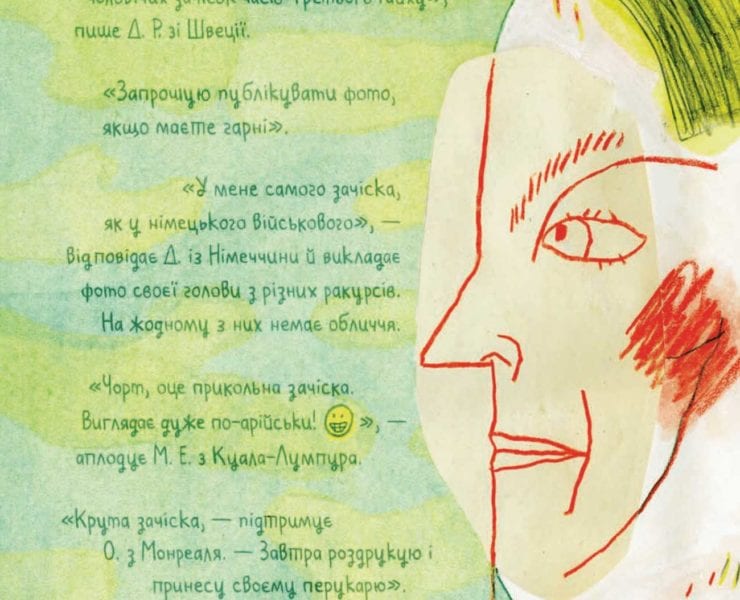 чоловічих зачісок часів Третього Райху»,
пише Д. Р. зі Швеції.
«Запрошую публікувати фото,
якщо маєте гарні».
«У мене самого зачіска,
як у німецького військового», —
відповідає Д. із Німеччини й викладає
фото своєї голови з різних ракурсів.
На жодному з них немає обличчя.
«Чорт, оце прикольна зачіска.
Виглядає дуже по-арійськи! 😁», —
аплодує М. Е. з Куала-Лумпура.
«Крута зачіска, — підтримує
О. з Монреаля. — Завтра роздрукую і
принесу своєму перукарю».